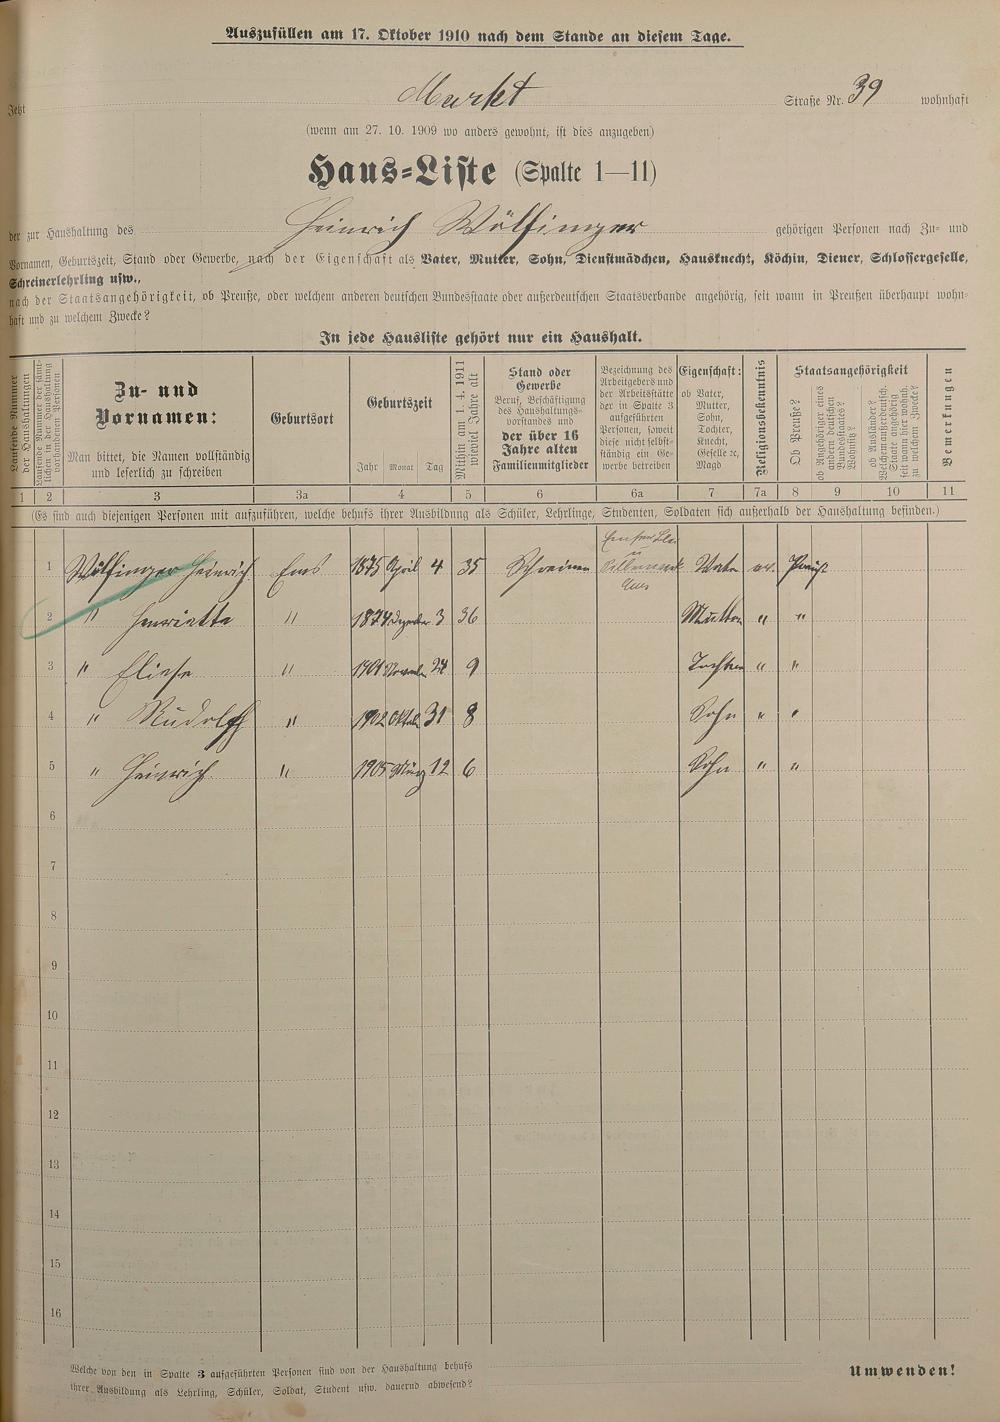 Auszufüllen am 17. Oktober 1910 nach dem Stande an diesem Tage.
Jetzt Markt Straße Nr. 39 wohnhaft
(wenn am 27. 10. 1909 wo anders gewohnt, ist dies anzugeben)
Haus-Liste (Spalte 1—11)
der zur Haushaltung des Heinrich Wölfinger gehörigen Personen nach Zu- und
Vornamen, Geburtszeit, Stand oder Gewerbe, nach der Eigenschaft als Vater, Mutter, Sohn, Dienstmädchen, Hausknecht, Köchin, Diener, Schlossergeselle,
Schreinerlehrling usw.,
nach der Staatsangehörigkeit, ob Preuße, oder welchem anderen deutschen Bundesstaate oder außerdeutschen Staatsverbande angehörig, seit wann in Preußen überhaupt wohn-
haft und zu welchem Zwecke?
In jede Hausliste gehört nur ein Haushalt.
Laufende Nummer
der Haushaltungen
Laufende Nummer der sämt-
lichen in der Haushaltung
vorhandenen Personen
Zu- und
Vornamen:
Man bittet, die Namen vollständig
und leserlich zu schreiben
Geburtsort
Geburtszeit
Jahr Monat Tag
Mithin am 1. 4. 1911
wieviel Jahre alt
Stand oder
Gewerbe
Beruf, Beschäftigung
des Haushaltungs-
vorstandes und
der über 16
Jahre alten
Familienmitglieder
Bezeichnung des
Arbeitgebers und
der Arbeitsstätte
der in Spalte 3
aufgeführten
Personen, soweit
diese nicht selbst-
ständig ein Ge-
werbe betreiben
Eigenschaft:
ob Vater,
Mutter,
Sohn,
Tochter,
Knecht,
Geselle ec,
Magd
Religionsbekenntnis
Staatsangehörigkeit
Ob Preuße?
ob Angehöriger eines
andern deutschen
Bundesstaates?
Wohnitz?
ob Ausländer?
Welchem außerdeutsch.
Staate angehörig
seit wann hier wohnh.
zu welchem Zwecke?
Bemerkungen
1 2 3 3a 4 5 6 6a 7 7a 8 9 10 11
(Es sind auch diejenigen Personen mit aufzuführen, welche behufs ihrer Ausbildung als Schüler, Lehrlinge, Studenten, Soldaten sich außerhalb der Haushaltung befinden.)
1 Wölfinger Heinrich Ems 1875 April 4 35 Schreiner Emser Blei u Silberwerk Ems Vater ev. Preuße
2 " Henriette " 1874 Dezember 3 36 Mutter " "
3 " Eliese " 1901 November 24 9 Tochter " "
4 " Rudolf " 1902 Oktob. 31 8 Sohn " "
5 " Heinrich " 1905 März 12 6 Sohn " "
6
7
8
9
10
11
12
13
14
15
16
Welche von den in Spalte 3 aufgeführten Personen sind von der Haushaltung behufs
ihrer Ausbildung als Lehrling, Schüler, Soldat, Student usw. dauernd abwesend?
Umwenden!